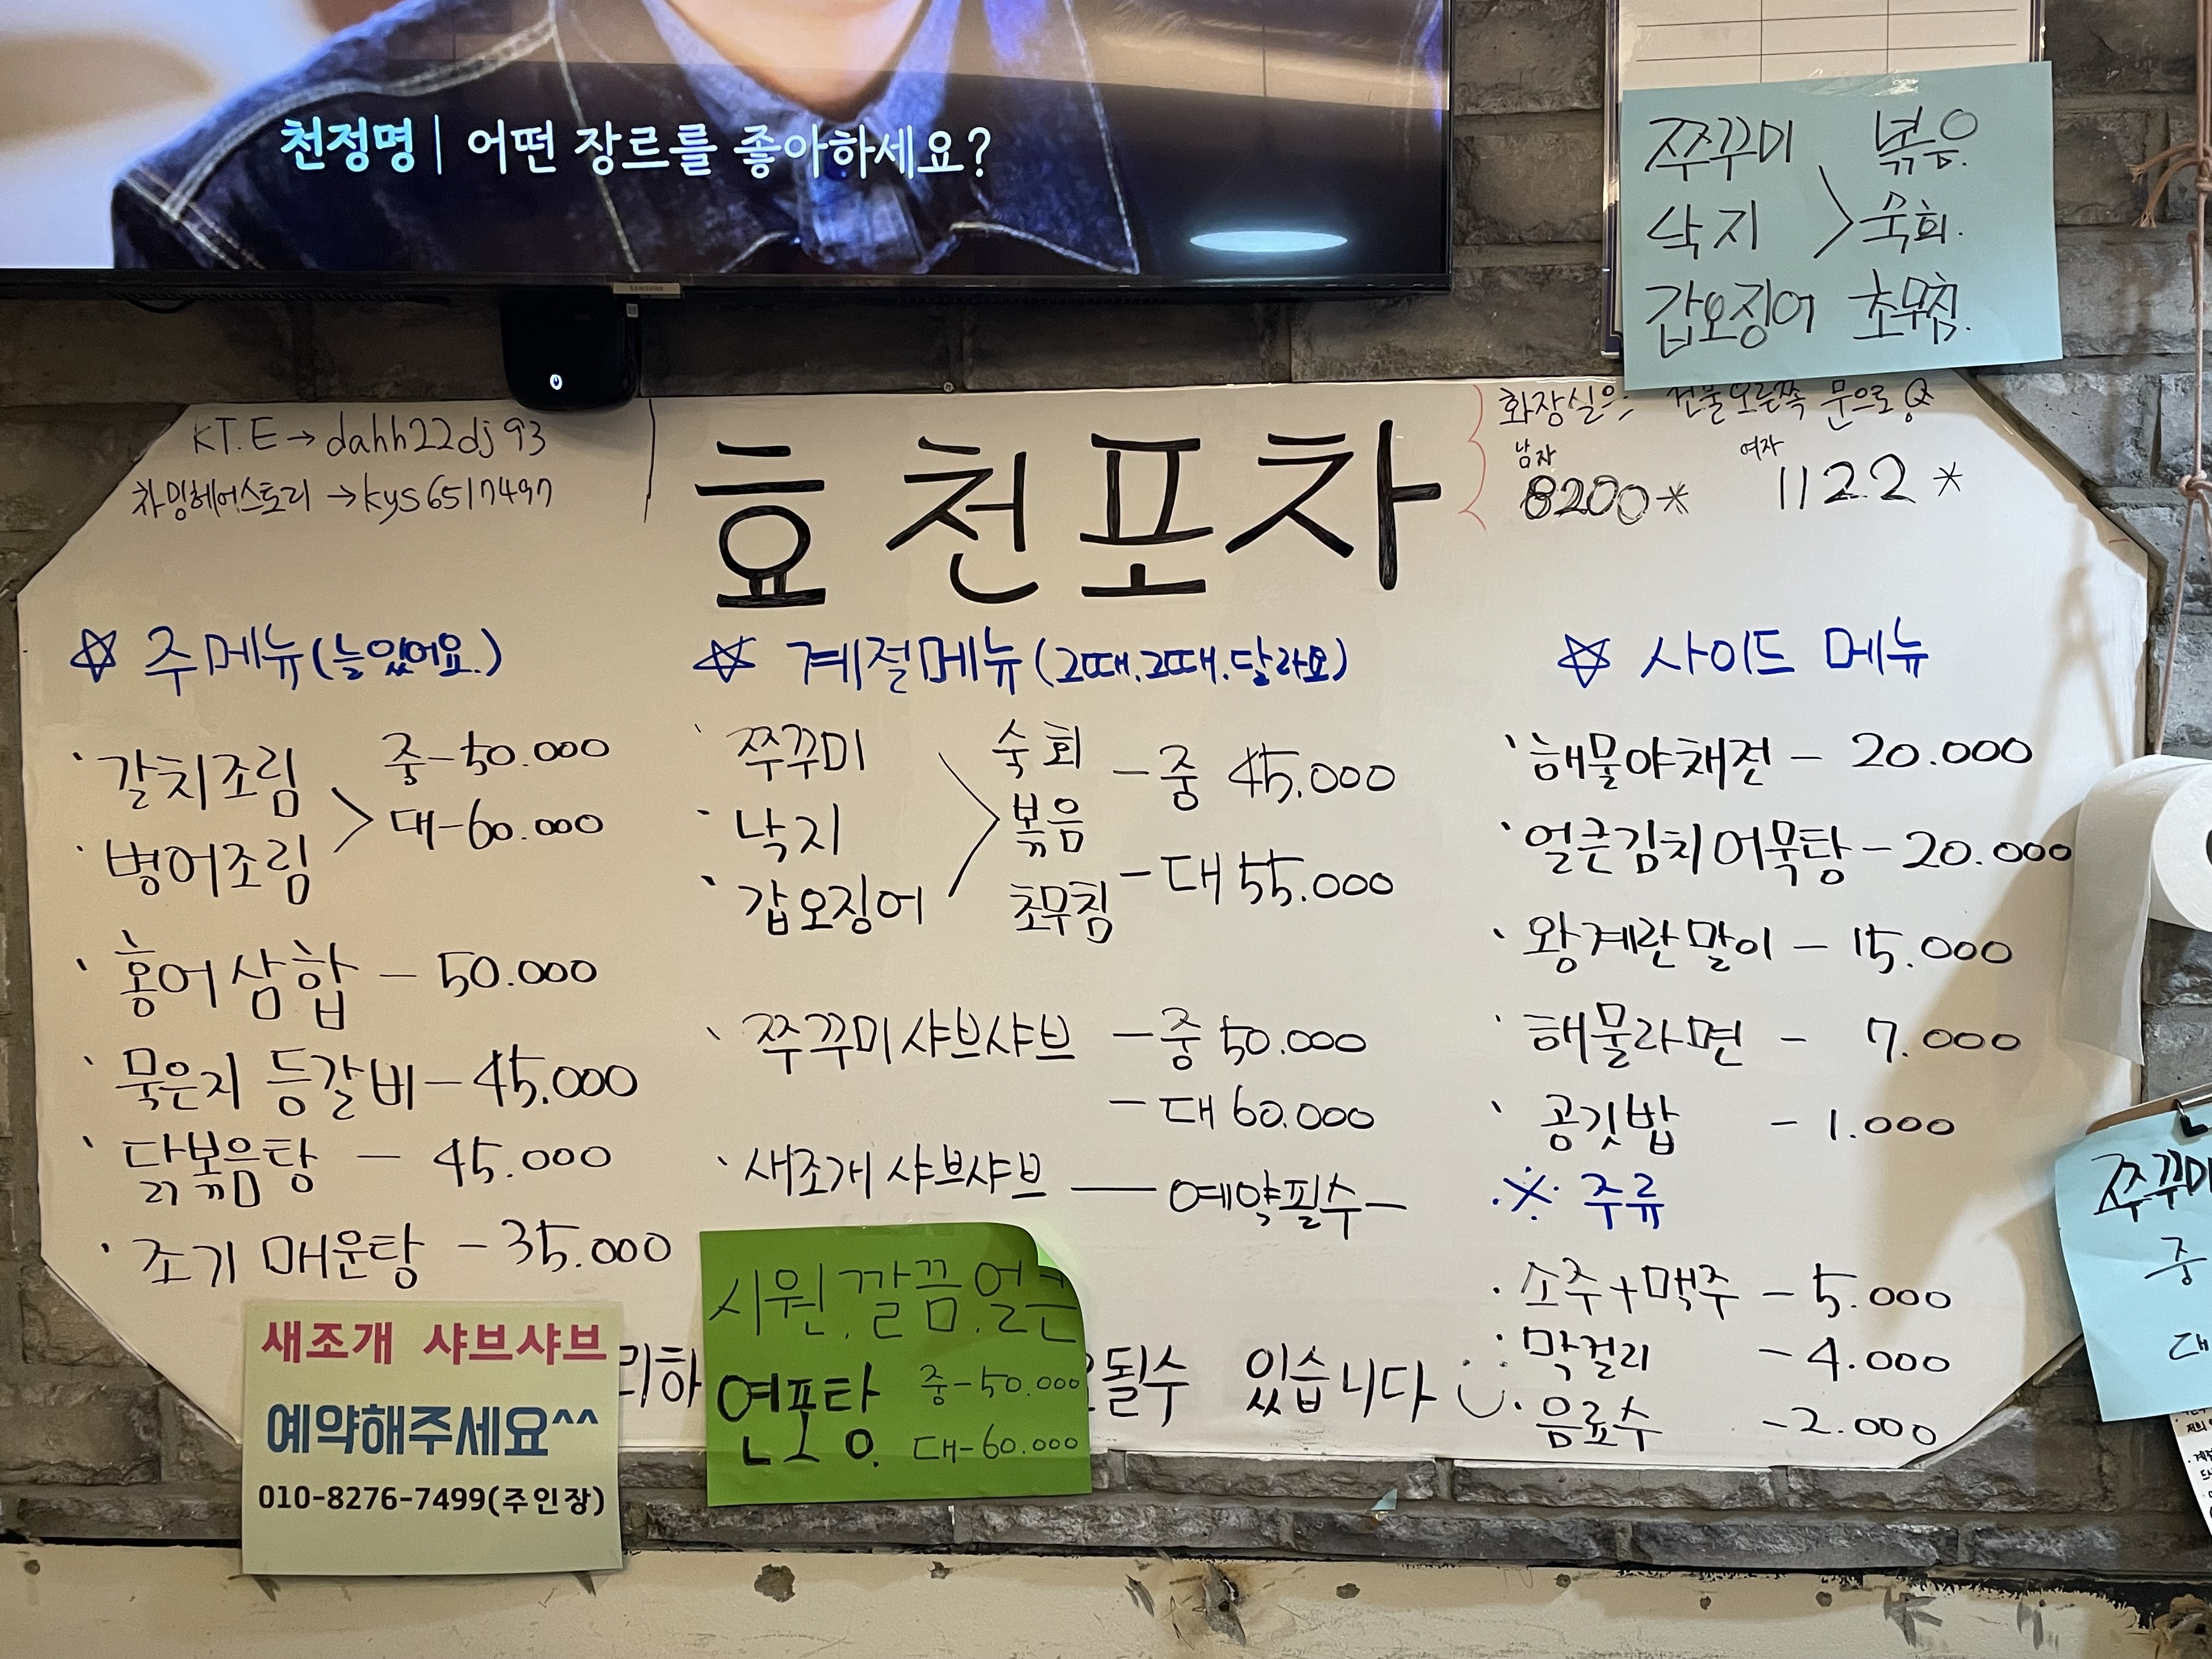 천정명 | 어떤 장르를 좋아하세요?
SAMSUNG
쭈꾸미 볶음.
낙지 > 숙회.
갑오징어 초무침.
KT.E→dahh22dj93
차밍헤어스토리→kys6517497
효천포차
화장실은 건물오른쪽 문으로
남자 여자
8200* 1122*
☆ 주메뉴(늘있어요.)
· 갈치조림 중-50.000
· 병어조림 > 대-60.000
· 홍어삼합 - 50.000
· 묵은지 등갈비-45.000
· 닭볶음탕 - 45.000
· 조기 매운탕 - 35.000
☆ 계절메뉴(그때.그때.달라요)
· 쭈꾸미 숙회 - 중 45.000
· 낙지 > 볶음
· 갑오징어 초무침 - 대 55.000
· 쭈꾸미샤브샤브 - 중 50.000
- 대 60.000
· 새조개 샤브샤브 — 예약필수-
☆ 사이드 메뉴
· 해물야채전 - 20.000
· 얼큰김치어묵탕 - 20.000
· 왕계란말이 - 15.000
· 해물라면 - 7.000
· 공깃밥 - 1.000
※ 주류
· 소주+맥주 - 5.000
· 막걸리 - 4.000
· 음료수 - 2.000
새조개 샤브샤브
예약해주세요^^
010-8276-7499(주인장)
시원.깔끔.얼큰
연포탕. 중-50.000
대-60.000
될수 있습니다
쭈꾸미
중
대